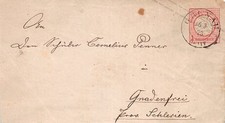 An
Den Schüler Cornelius Penner
in
Gnadenfrei
Prov Schlesien